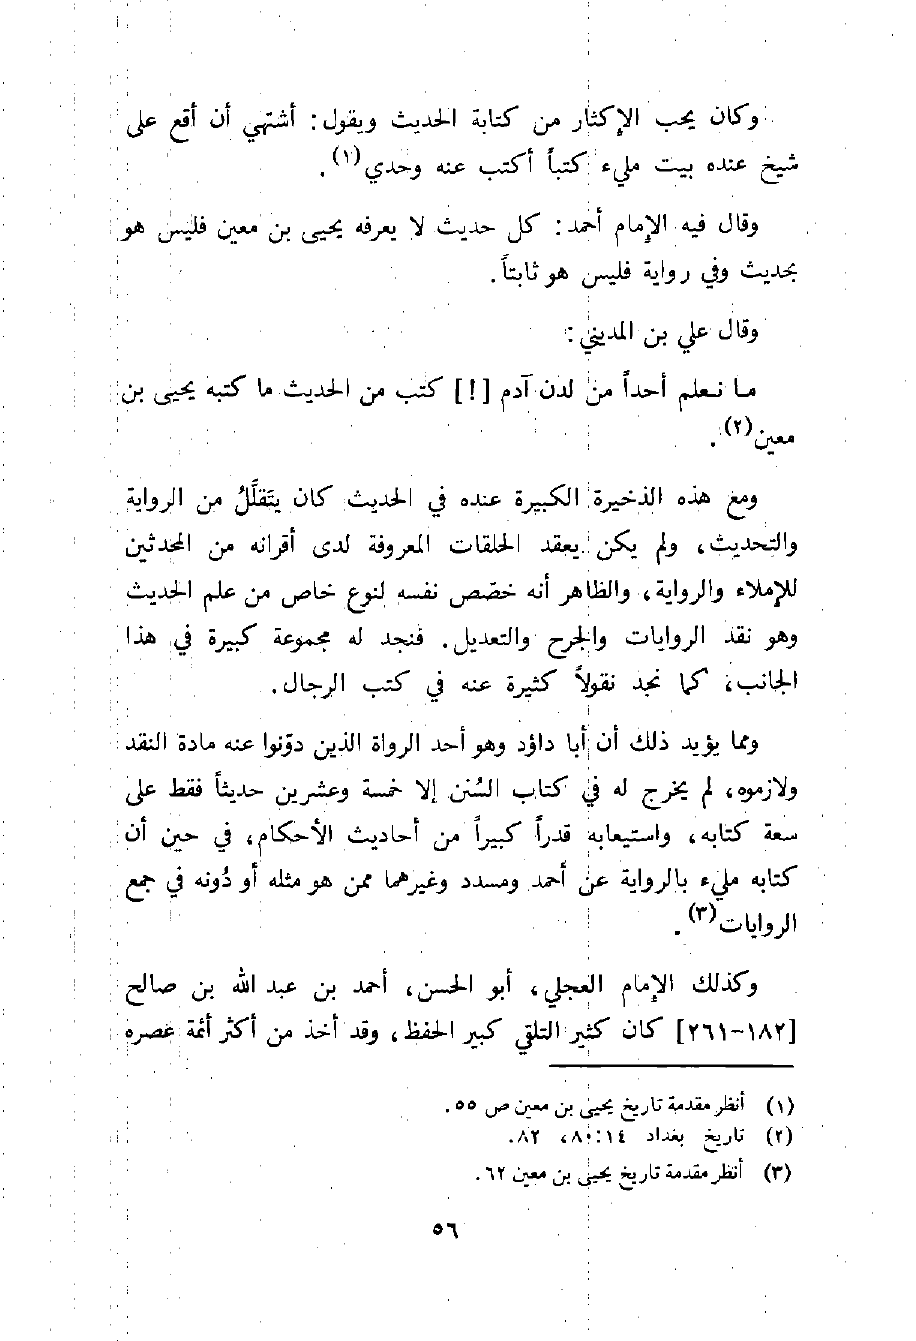 وكان يحب الإكثار من كتابة الحديث ويقول: أشتهي أن أقع على
شيخ عنده بيت مليء كتباً أكتب عنه وحدي(١).
وقال فيه الإمام أحمد: كل حديث لا يعرفه يحيى بن معين فليس هو
بحديث وفي رواية فليس هو ثابتاً.
وقال علي بن المديني:
ما نعلم أحداً من لدن آدم [!] كتب من الحديث ما كتبه يحيى بن
معين(٢).
ومع هذه الذخيرة الكبيرة عنده في الحديث كان يتَقلَّلُ من الرواية
والتحديث، ولم يكن يعقد الحلقات المعروفة لدى أقرانه من المحدثين
للإملاء والرواية، والظاهر أنه خصّص نفسه لنوع خاص من علم الحديث
وهو نقد الروايات والجرح والتعديل. فنجد له مجموعة كبيرة في هذا
الجانب، كما نجد نقولاً كثيرة عنه في كتب الرجال.
ومما يؤيد ذلك أن أبا داؤد وهو أحد الرواة الذين دوّنوا عنه مادة النقد
ولازموه، لم يخرج له في كتاب السُنن إلا خمسة وعشرين حديثاً فقط على
سعة كتابه، واستيعابه قدراً كبيراً من أحاديث الأحكام، في حين أن
كتابه مليء بالرواية عن أحمد ومسدد وغيرهما ممن هو مثله أو دُونه في جمع
الروايات(٣).
وكذلك الإمام العجلي، أبو الحسن، أحمد بن عبد الله بن صالح
[١٨٢-٢٦١] كان كثير التلقي كبير الحفظ، وقد أخذ من أكثر أئمة عصره
(١) أنظر مقدمة تاريخ يحيى بن معين ص ٥٥.
(٢) تاريخ بغداد ١٤:٨٠، ٨٢.
(٣) أنظر مقدمة تاريخ يحيى بن معين ٦٢.
٥٦